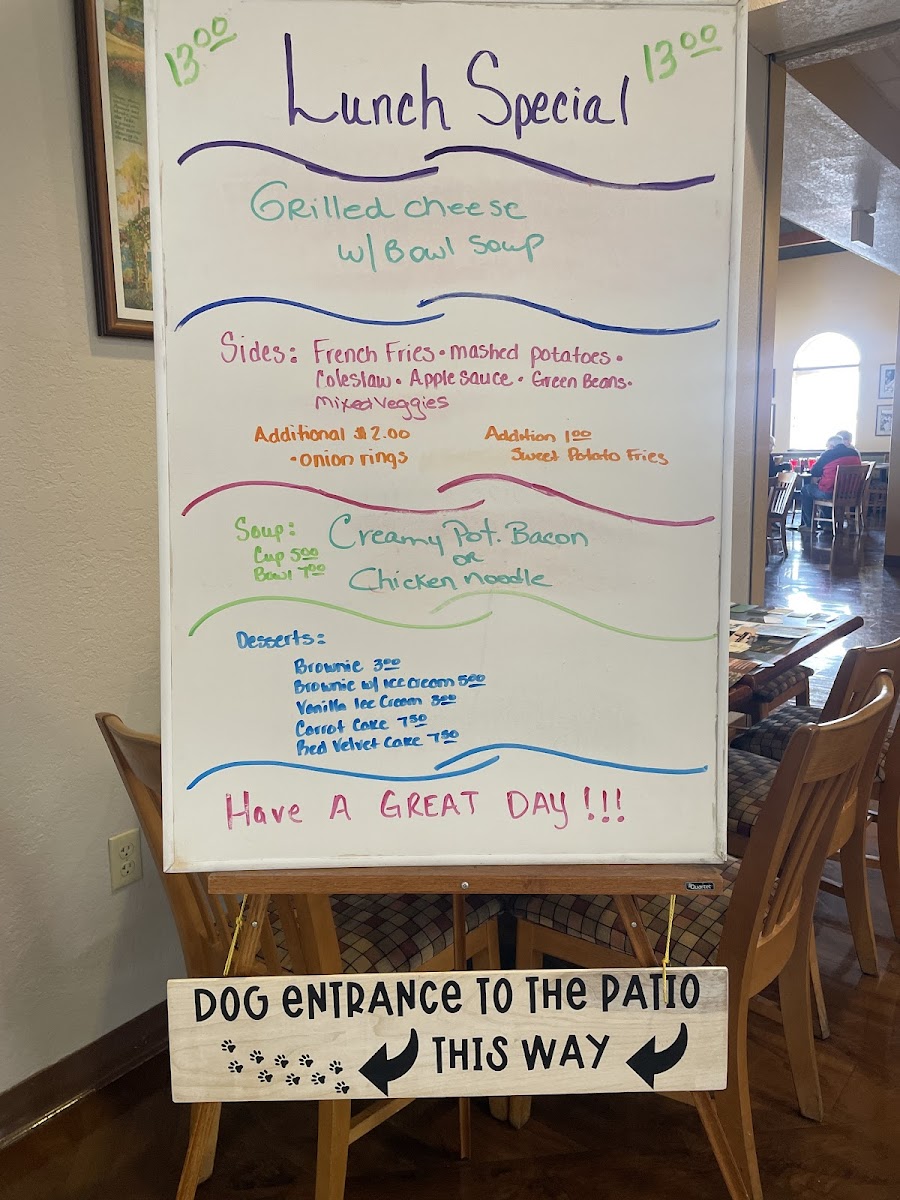 13.00 Lunch Special 13.00
Grilled cheese
w/ Bowl Soup
Sides: French Fries • mashed potatoes •
Coleslaw • Applesauce • Green Beans •
Mixed Veggies
Additional $2.00
• onion rings
Addition 1.00
Sweet Potato Fries
Soup: Creamy Pot. Bacon
Cup 5.00 or
Bowl 7.00 Chicken noodle
Desserts:
Brownie 3.00
Brownie w/ ice cream 5.00
Vanilla Ice Cream 3.00
Carrot Cake 7.50
Red Velvet Cake 7.50
Have A GREAT DAY!!!
Quartet
DOG ENTRANCE TO THE PATIO
THIS WAY